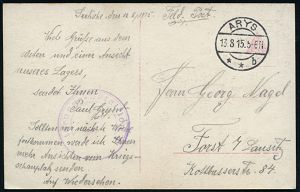 Feld-Post.
ARYS
13.8.15. 5-6N
* * b
Viele Grüße aus dem
Osten und einer Ansicht
unseres Lagers,
sendet Ihnen
Paul
Herrn Georg Nagel
Forst i/ Lausitz
Kottbusserstr. 84
Sollten wir nächste Woche
fortkommen werde ich Ihnen
mehr Ansichten vom Kriegs-
schauplatz senden
Auf Wiedersehen.